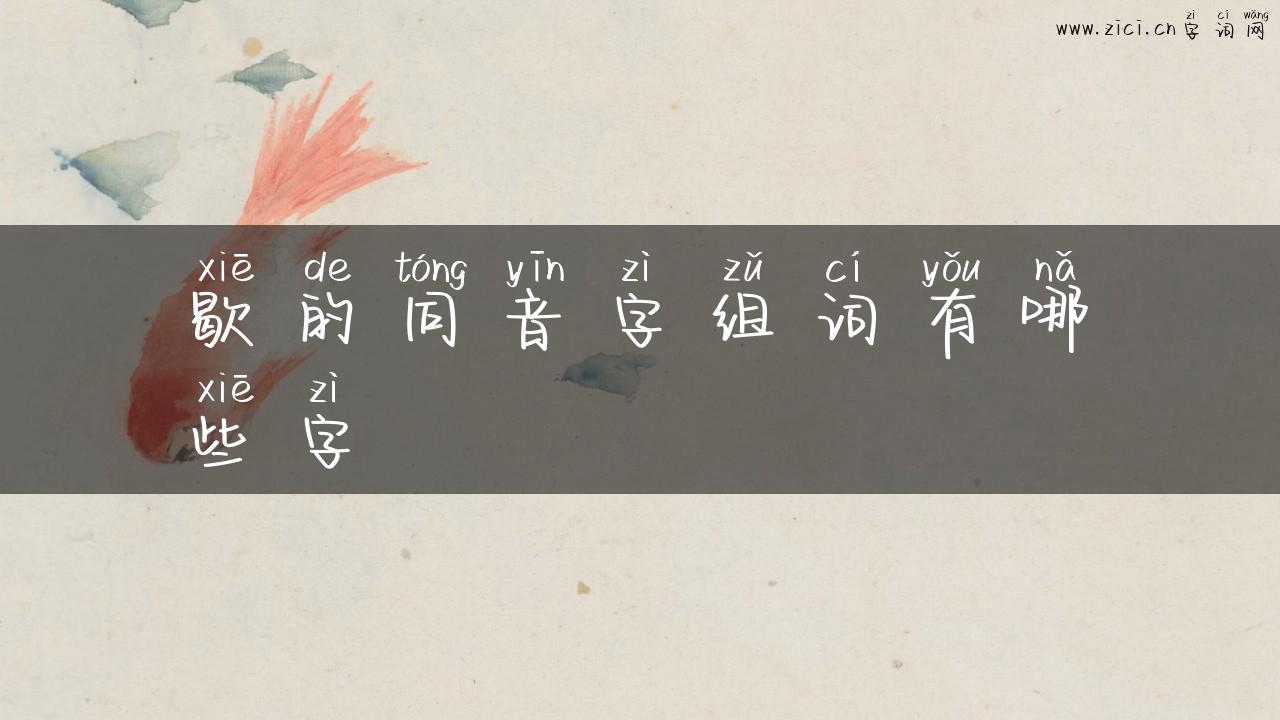 zì cí wǎng
www.zici.cn 字 词 网
xiē de tóng yīn zì zǔ cí yǒu nǎ
歇 的 同 音 字 组 词 有 哪
xiē zì
些 字